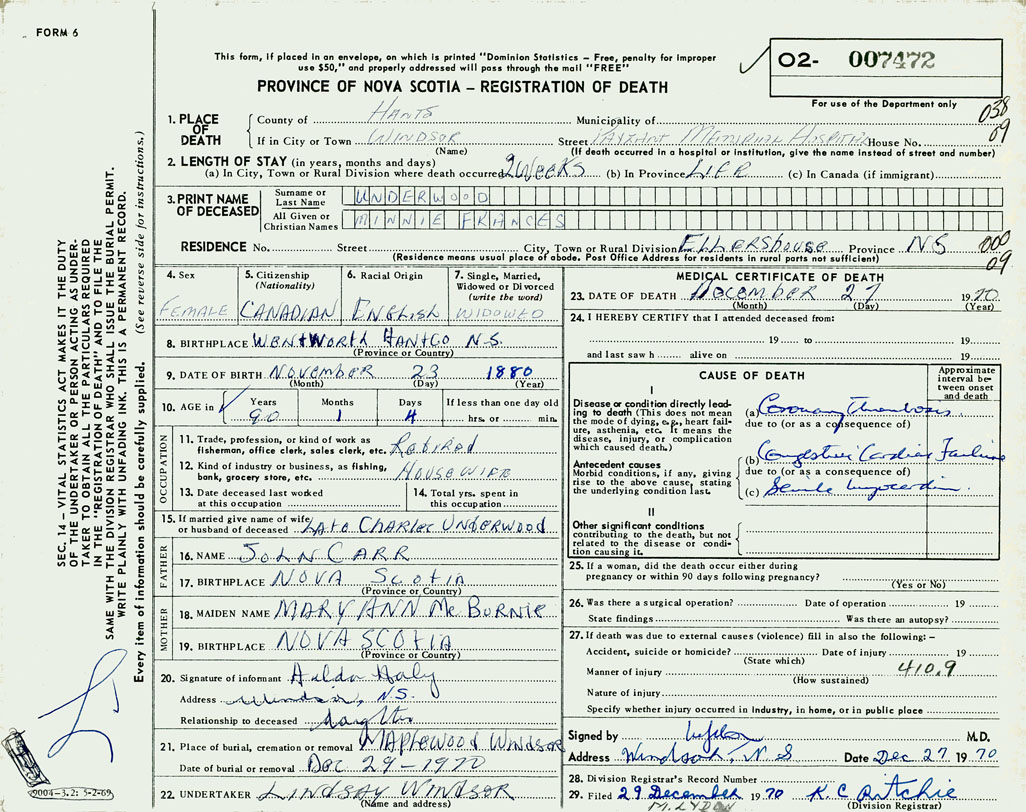 FORM 6
This form, if placed in an envelope, on which is printed "Dominion Statistics – Free, penalty for improper
use $50," and properly addressed will pass through the mail "FREE"
02- 007472
PROVINCE OF NOVA SCOTIA – REGISTRATION OF DEATH
For use of the Department only
038
09
1. PLACE OF DEATH
County of HANTS Municipality of
If in City or Town WINDSOR Street PAYZANT MEMORIAL HOSPITAL House No.
(Name) (If death occurred in a hospital or institution, give the name instead of street and number)
2. LENGTH OF STAY (in years, months and days)
(a) In City, Town or Rural Division where death occurred 2 WEEKS (b) In Province LIFE (c) In Canada (if immigrant)
3. PRINT NAME OF DECEASED
Surname or Last Name UNDERWOOD
All Given or Christian Names MINNIE FRANCES
RESIDENCE No. Street City, Town or Rural Division ELLERSHOUSE Province NS
000
09
(Residence means usual place of abode. Post Office Address for residents in rural parts not sufficient)
4. Sex
FEMALE
5. Citizenship
(Nationality)
CANADIAN
6. Racial Origin
ENGLISH
7. Single, Married,
Widowed or Divorced
(write the word)
WIDOWED
8. BIRTHPLACE WENTWORTH HANTCO N.S.
(Province or Country)
9. DATE OF BIRTH NOVEMBER 23 1880
(Month) (Day) (Year)
10. AGE in
Years Months Days If less than one day old
90 1 4 hrs. or min.
OCCUPATION
11. Trade, profession, or kind of work as
fisherman, office clerk, sales clerk, etc. Retired
12. Kind of industry or business, as fishing,
bank, grocery store, etc. HOUSEWIFE
13. Date deceased last worked
at this occupation
14. Total yrs. spent in
this occupation
15. If married give name of wife
or husband of deceased Late Charles UNDERWOOD
FATHER
16. NAME JOHN CARR
17. BIRTHPLACE NOVA SCOTIA
(Province or Country)
MOTHER
18. MAIDEN NAME MARY ANN McBURNIE
19. BIRTHPLACE NOVA SCOTIA
(Province or Country)
20. Signature of informant Hilda Haley
Address Windsor, N.S.
Relationship to deceased daughter
21. Place of burial, cremation or removal MAPLEWOOD WINDSOR
Date of burial or removal DEC 29-1970
22. UNDERTAKER LINDSAY WINDSOR
(Name and address)
MEDICAL CERTIFICATE OF DEATH
23. DATE OF DEATH DECEMBER 27 1970
(Month) (Day) (Year)
24. I HEREBY CERTIFY that I attended deceased from:
19 to 19
and last saw h alive on 19
CAUSE OF DEATH
Approximate
interval be-
tween onset
and death
I
Disease or condition directly lead-
ing to death (This does not mean
the mode of dying, e.g., heart fail-
ure, asthenia, etc. It means the
disease, injury, or complication
which caused death.)
(a) Coronary Thrombosis
due to (or as a consequence of)
Antecedent causes
Morbid conditions, if any, giving
rise to the above cause, stating
the underlying condition last.
(b) Congestive Cardiac Failure
due to (or as a consequence of)
(c) Senile
II
Other significant conditions
contributing to the death, but not
related to the disease or condi-
tion causing it.
25. If a woman, did the death occur either during
pregnancy or within 90 days following pregnancy?
(Yes or No)
26. Was there a surgical operation? Date of operation 19
State findings Was there an autopsy?
27. If death was due to external causes (violence) fill in also the following: –
Accident, suicide or homicide? Date of injury 19
(State which)
Manner of injury 410.9
(How sustained)
Nature of injury
Specify whether injury occurred in industry, in home, or in public place
Signed by M.D.
Address Windsor, N S Date Dec 27 1970
28. Division Registrar's Record Number
29. Filed 29 December 1970 K.C. Ritchie
(Division Registrar)
SEC. 14 – VITAL STATISTICS ACT MAKES IT THE DUTY
OF THE UNDERTAKER OR PERSON ACTING AS UNDER-
TAKER TO OBTAIN ALL THE PARTICULARS REQUIRED
IN THE "REGISTRATION OF DEATH" AND TO FILE THE
SAME WITH THE DIVISION REGISTRAR WHO SHALL ISSUE THE BURIAL PERMIT.
WRITE PLAINLY WITH UNFADING INK. THIS IS A PERMANENT RECORD.
Every item of information should be carefully supplied. (See reverse side for instructions.)
9004-3.2: 5-2-69